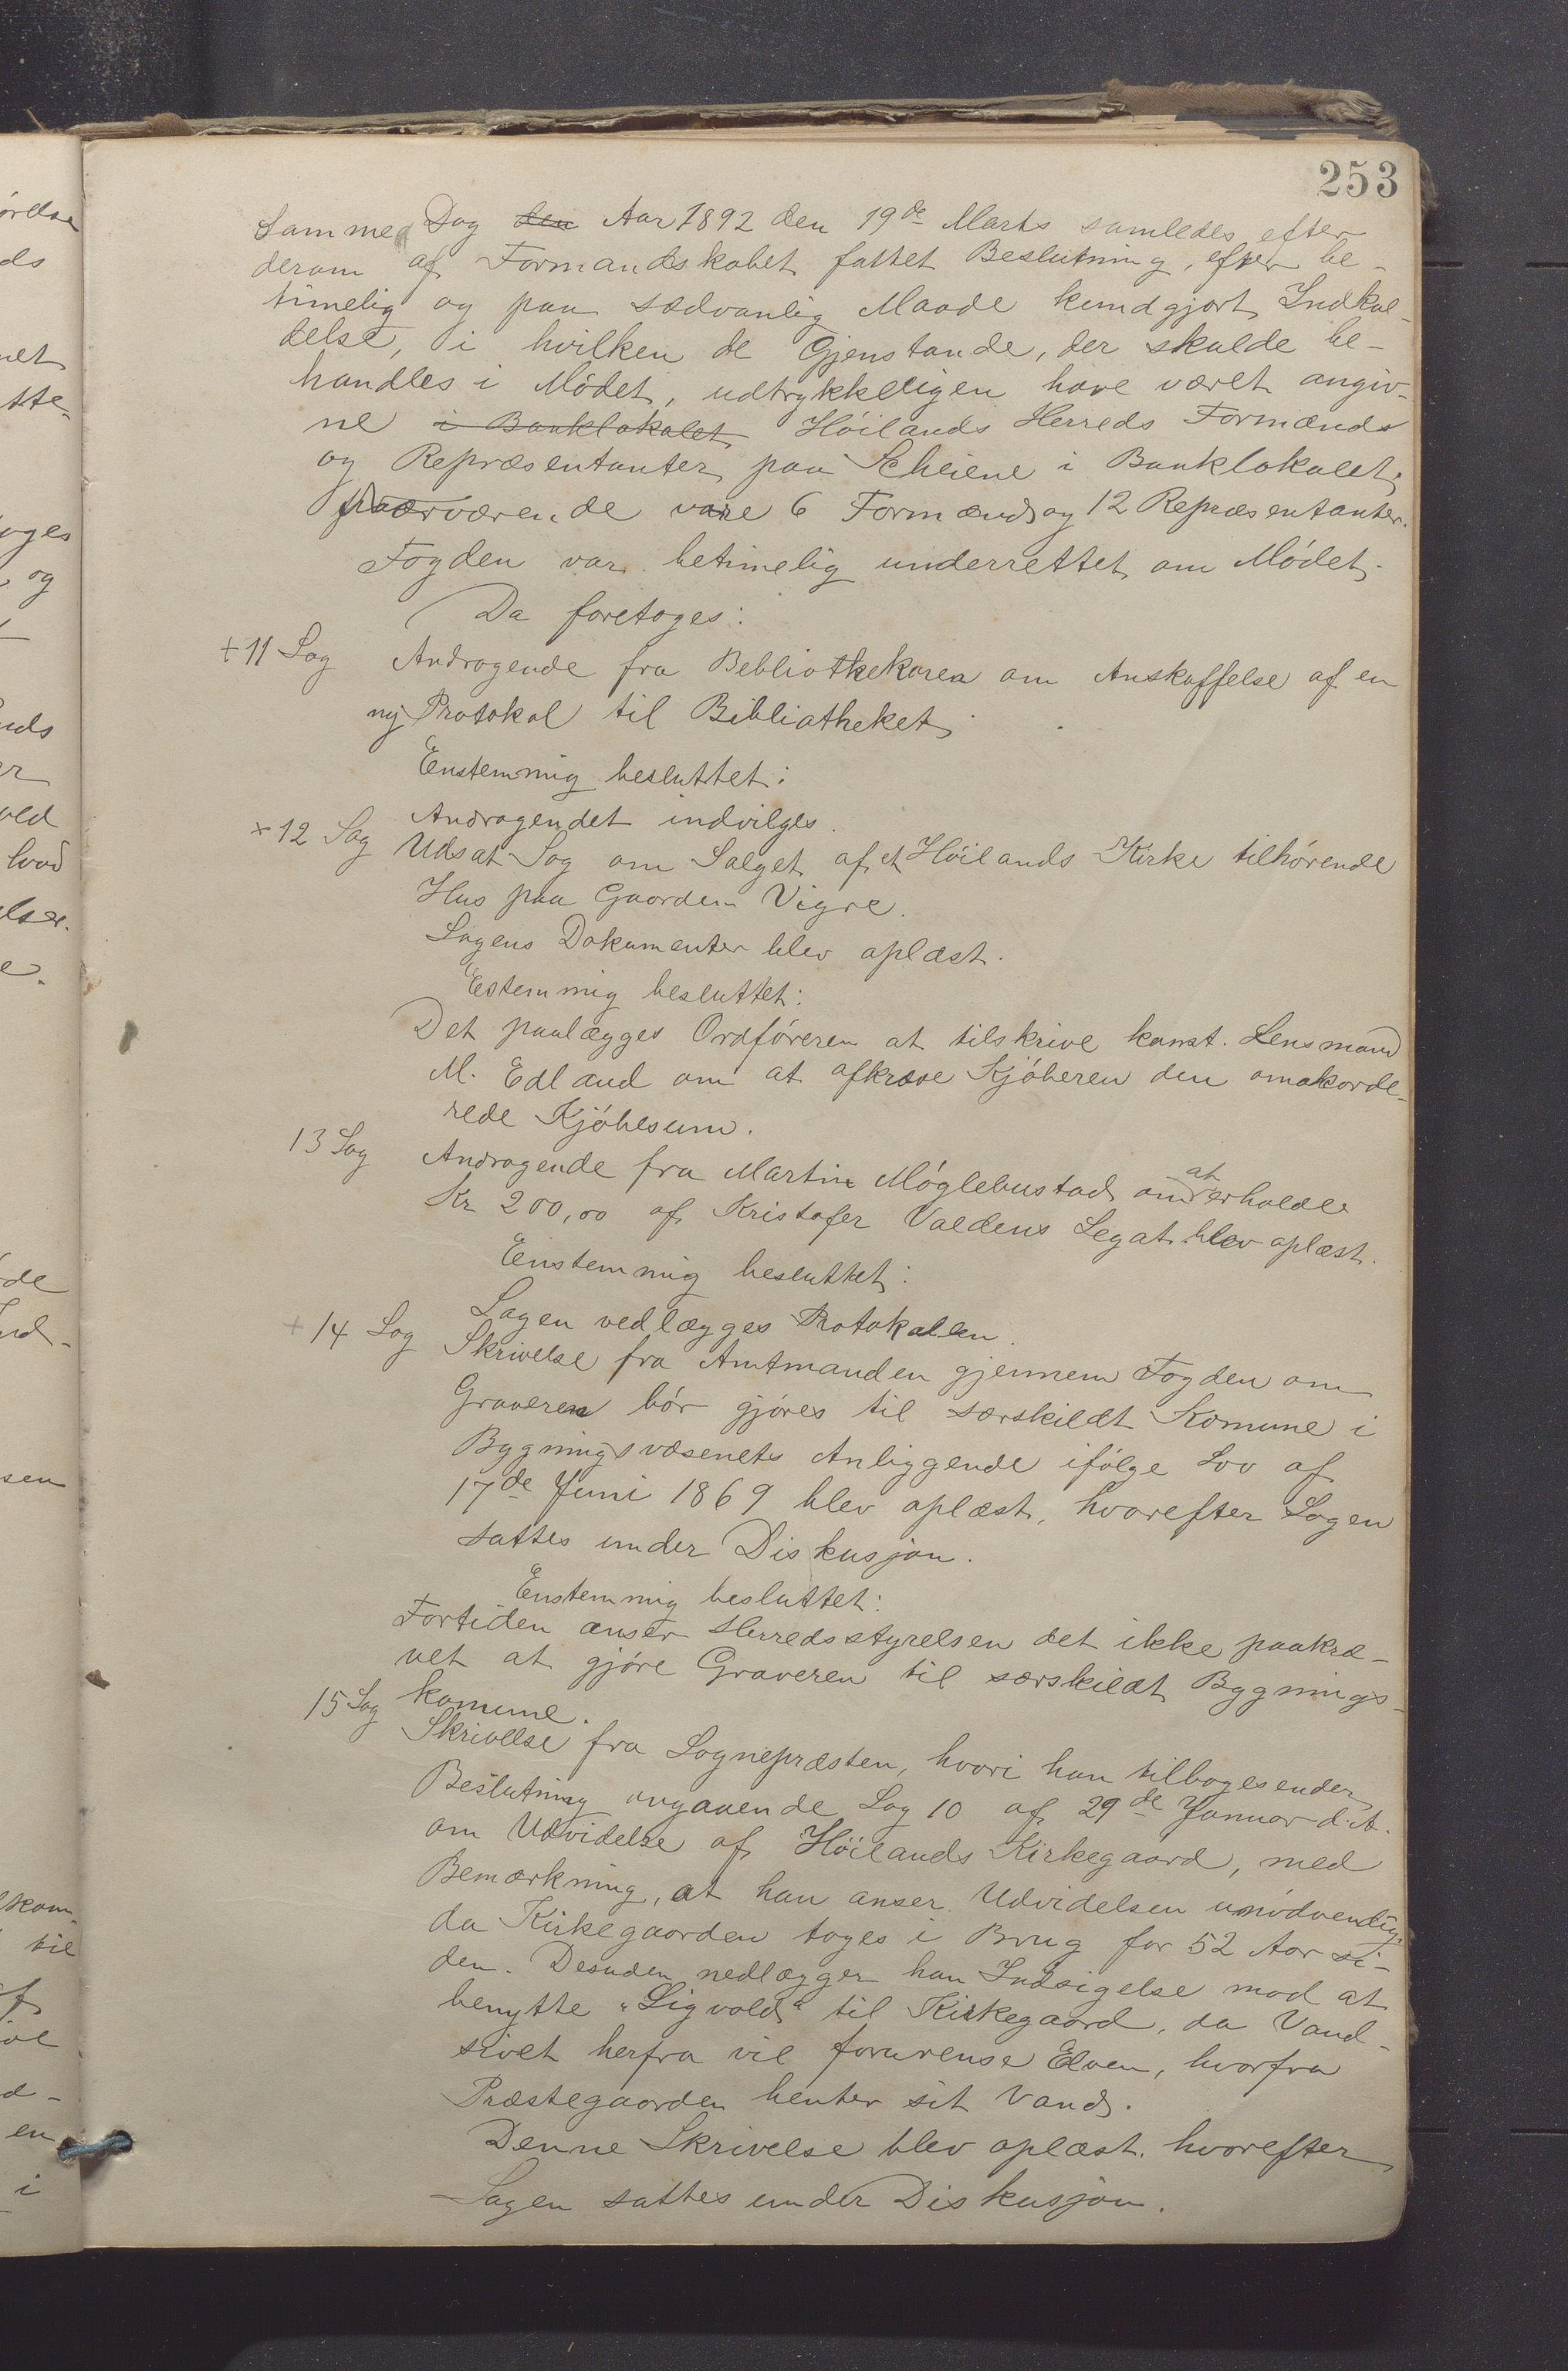 253
Samme Dag den Aar 1892 den 19de Marts samledes efter
derom af Formandskabet fattet Beslutning, efter be-
timelig og paa sædvanlig Maade kundgjort Indkal-
delse, i hvilken de Gjenstande, der skulde be-
handles i Mødet, udtrykkeligen have været angiv-
ne i Banklokalet Höilands Herreds Formænd
og Repræsentanter paa Scheiene i Banklokalet;
nærværende vare 6 Formænd og 12 Repræsentanter.
Fogden var betimelig underrettet om Mødet.
Da foretoges:
+11 Sag Andragende fra Bebliothekaren om Anskaffelse af en
ny Protokol til Bibliotheket
Eenstemmig besluttet:
Andragendet indvilges.
×12 Sag Udsat Sag om Salget af et Höilands Kirke tilhørende
Hus paa Gaarden Vigre.
Sagens Dokumenter blev oplæst.
Eestemmig besluttet:
Det paalægges Ordføreren at tilskrive konst. Lensmand
M. Edland om at afkræve Kjøberen den omakorde-
rede Kjøbesum.
13 Sag Andragende fra Martin Møglebustad om at erholde
Kr 200,00 af Kristofer Valdens Legat blev oplæst.
Eenstemmig besluttet:
Sagen vedlægges Protokollen.
+ 14 Sag Skrivelse fra Amtmanden gjennem Fogden om
Graveren bør gjøres til særskildt Komune i
Bygningsvæsenets Anliggende ifølge Lov af
17de Juni 1869 blev oplæst, hvorefter Sagen
sattes under Diskusjon.
Enstemmig besluttet:
Fortiden anser Herredsstyrelsen det ikke paakræ-
vet at gjøre Graveren til særskildt Bygnings-
komune.
15 Sag Skrivelse fra Sognepræsten, hvori han tilbagesender
Beslutning angaaende Sag 10 af 29de Januar d. A.
om Udvidelse af Höilands Kirkegaard, med
Bemærkning, at han anser Udvidelsen unødvendig,
da Kirkegaarden toges i Brug for 52 Aar si-
den. Desuden nedlægger han Indsigelse mod at
benytte "Ligvold" til Kirkegaard, da Vand-
sivet herfra vil forurense Elven, hvorfra
Præstegaarden henter sit Vand.
Denne Skrivelse blev oplæst, hvorefter
Sagen sattes under Diskusjon.